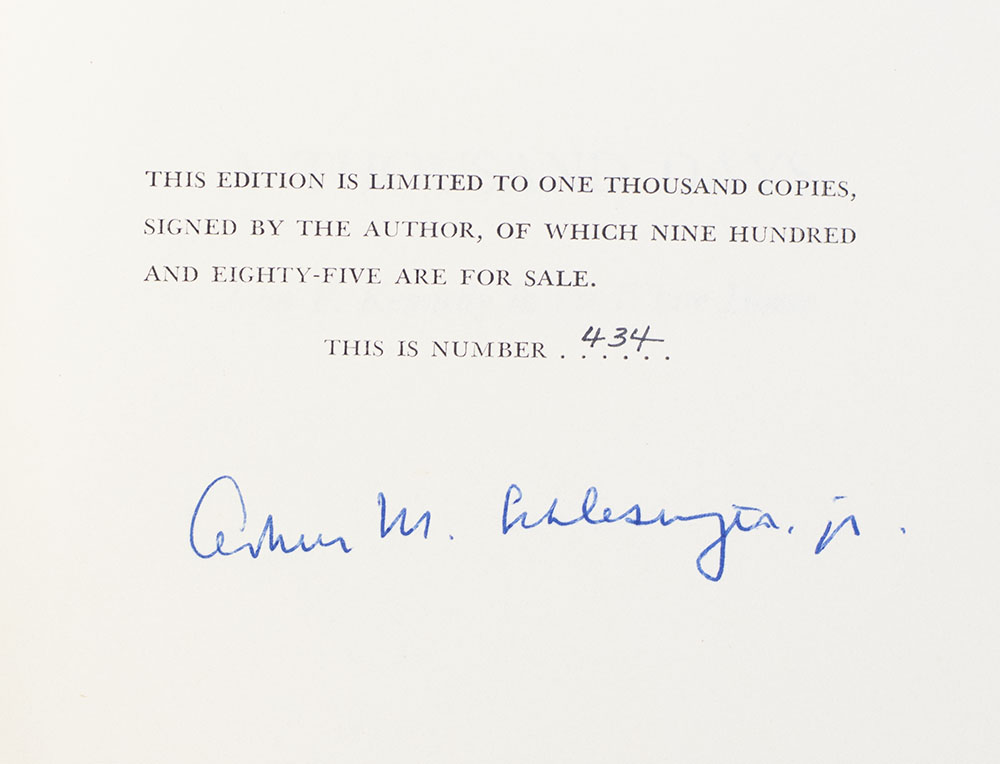 THIS EDITION IS LIMITED TO ONE THOUSAND COPIES,
SIGNED BY THE AUTHOR, OF WHICH NINE HUNDRED
AND EIGHTY-FIVE ARE FOR SALE.
THIS IS NUMBER . . . . . . 434
Arthur M. Schlesinger, jr.